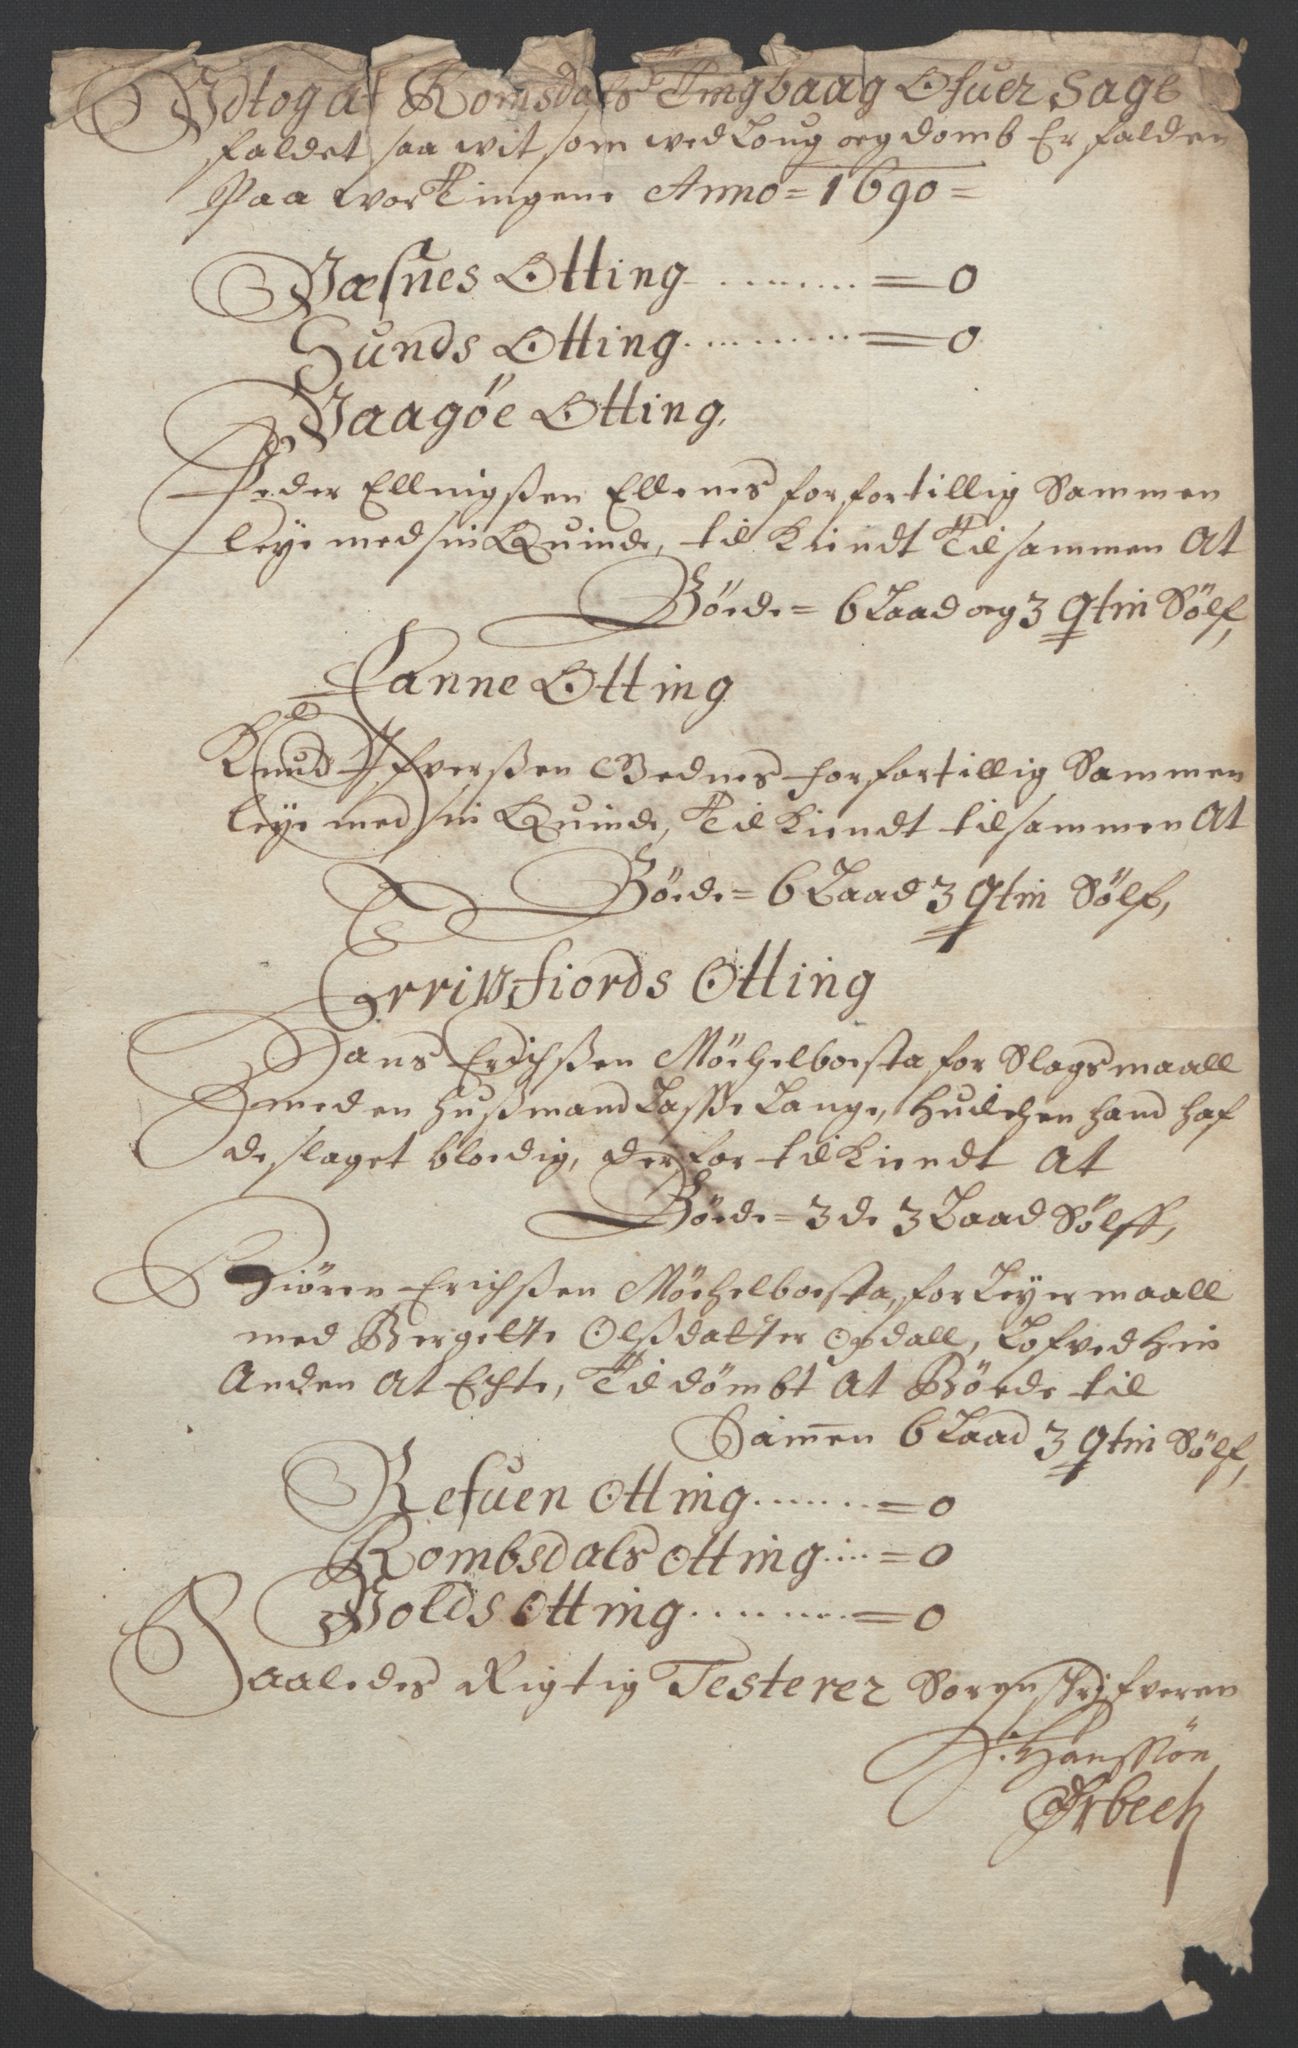 Udtog af Komsdals Tingbaag Ofuer Sage
faldet saa wit som wed Loug oeg domb Er falden
Paa worTingene Anno = 1690 =
Væsnes Otting ......... = 0
Sunds Otting ......... = 0
Vaagöe Otting,
Peder Ellingßen Ellenes for fortillig Sammen
leye med sin Quinde, til kiendt Til sammen At
Böede = 6 Laad oeg 3 qtin Sölf,
Fanne Otting
Knud Ifverßen Vednes for fortillig Sammen
leye med sin Quinde, Til kiendt til sammen At
Böede = 6 Laad 3 qtin Sölf,
Erriszfiords Otting
Hans Erichßen Möchelboesta for Slagsmaall
med en Hußmand Laße Lange, Huilchen hand haf
de slaget bloedig, derfor til kiendt At
Böede = 3 de 3 Laad Sölff,
Siören Erichßen Möchelboesta, for Leyermaall
med Bergette Olßdatter Opdall, Lofved hin
Anden At Echte, Til dömbt At Böede til
Samen 6 Laad 3 qtin Sölf,
Refuen Otting ....... = 0
Rombsdals Otting .... = 0
Volds Otting ......... = 0
Saaledes Rigtig Testerer Sorenskrifveren
J: Hanssön
Ørbech